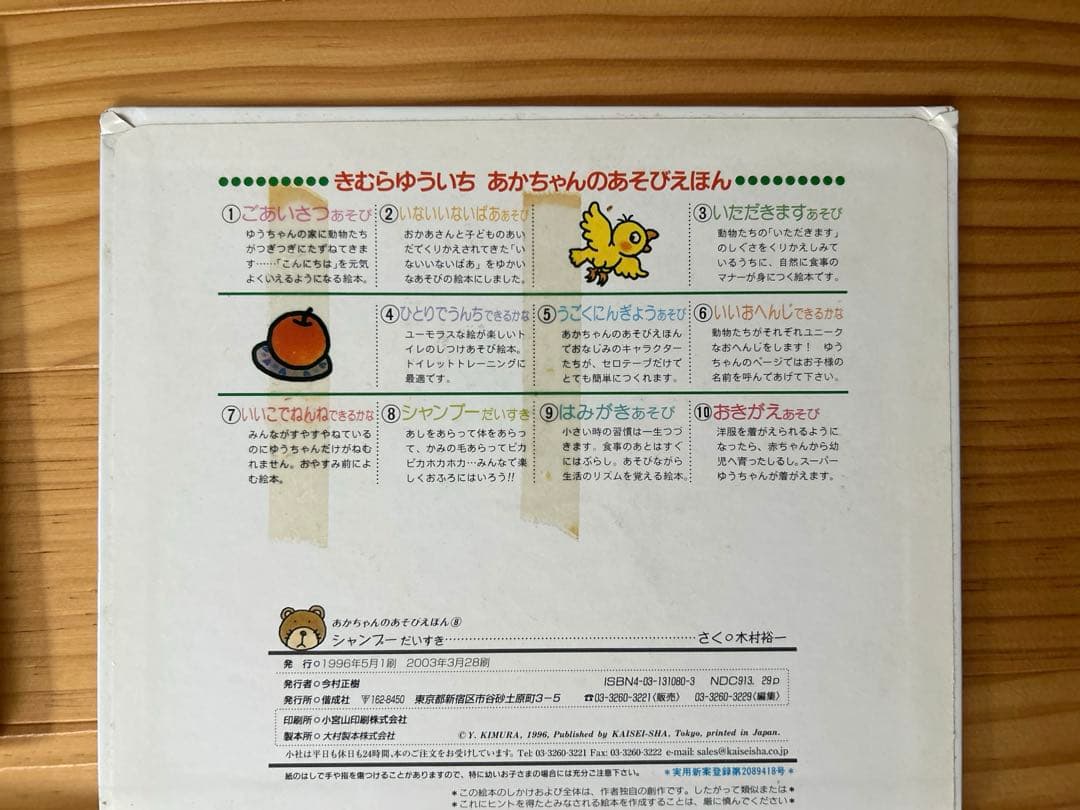 きむらゆういち あかちゃんのあそびえほん
①ごあいさつあそび
ゆうちゃんの家に動物たち
がつぎつぎにたずねてきま
す……「こんにちは」を元気
よくいえるようになる絵本。
②いないいないばああそび
おかあさんと子どものあい
だでくりかえされてきた「い
ないいないばあ」をゆかい
なあそびの絵本にしました。
③いただきますあそび
動物たちの「いただきます」
のしぐさをくりかえしみて
いるうちに、自然に食事の
マナーが身につく絵本です。
④ひとりでうんちできるかな
ユーモラスな絵が楽しいト
イレのしつけあそび絵本。
トイレットトレーニングに
最適です。
⑤うごくにんぎょうあそび
あかちゃんのあそびえほん
でおなじみのキャラクター
たちが、セロテープだけで
とても簡単につくれます。
⑥いいおへんじできるかな
動物たちがそれぞれユニーク
なおへんじをします! ゆう
ちゃんのページではお子様の
名前を呼んであげて下さい。
⑦いいこでねんねできるかな
みんながすやすやねている
のにゆうちゃんだけがねむ
れません。おやすみ前によ
む絵本。
⑧シャンプーだいすき
あしをあらって体をあらっ
て、かみの毛あらってピカ
ピカホカホカ…みんなで楽
しくおふろにはいろう!!
⑨はみがきあそび
小さい時の習慣は一生つづ
きます。食事のあとはすぐ
にはぶらし。あそびながら
生活のリズムを覚える絵本。
⑩おきがえあそび
洋服を着がえられるように
なったら、赤ちゃんから幼
児へ育ったしるし。スーパー
ゆうちゃんが着がえます。
あかちゃんのあそびえほん⑧
シャンプーだいすき……………さく○木村裕一
発 行○1996年5月1刷 2003年3月28刷
発行者○今村正樹 ISBN4-03-131080-3 NDC913. 29p
発行所○偕成社 〒162-8450 東京都新宿区市谷砂土原町3-5 ☎03-3260-3221(販売) 03-3260-3229(編集)
印刷所○小宮山印刷株式会社
製本所○大村製本株式会社 ©Y. KIMURA, 1996, Published by KAISEI-SHA, Tokyo, printed in Japan.
小社は平日も休日も24時間、本のご注文をお受けしています。Tel: 03-3260-3221 Fax: 03-3260-3222 e-mail: sales@kaiseisha.co.jp
紙のはしで手や指を傷つけることがありますので、特に幼いお子さまの場合には充分ご注意下さい。 *実用新案登録第2089418号*
*この絵本のしかけおよび全体は、作者独自の創作です。したがって類似または*
*これにヒントを得たとみなされる絵本を作成することは、厳に慎んでください*